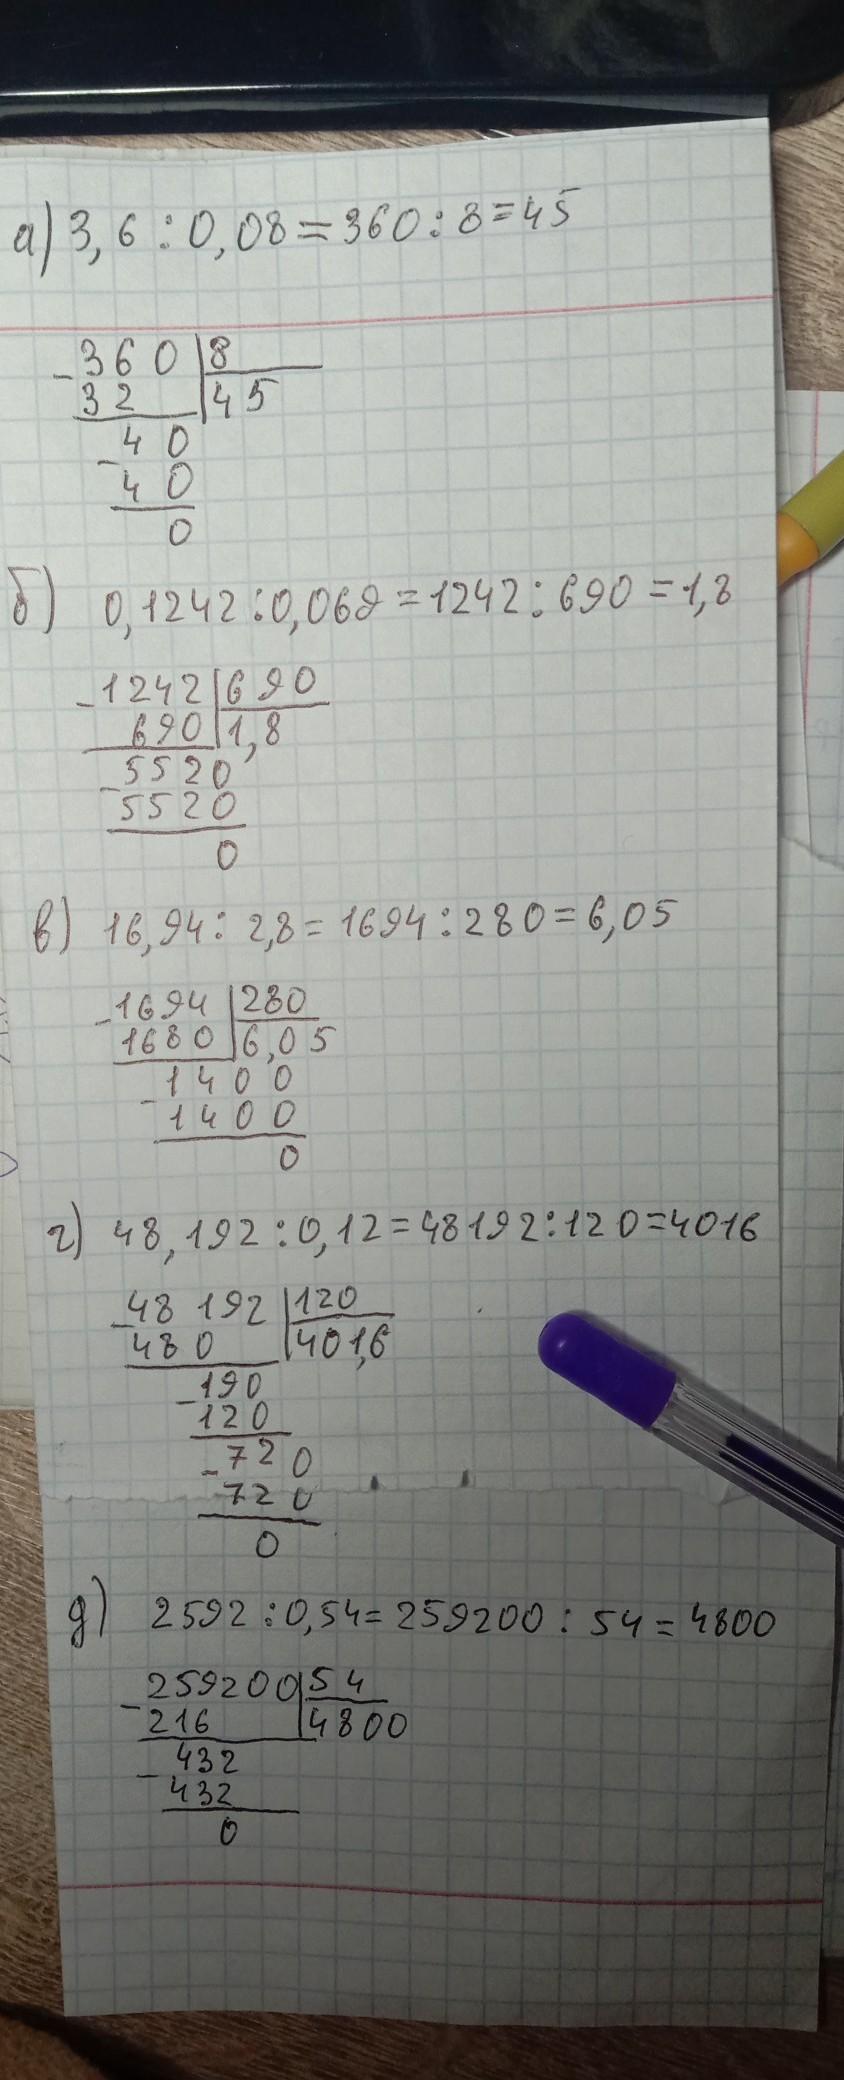 а) 3,6 : 0,08 = 360 : 8 = 45
- 360 | 8
32 | 45
- 40
40
0
б) 0,1242 : 0,069 = 1242 : 690 = 1,8
- 1242 | 690
690 | 1,8
- 5520
5520
0
в) 16,94 : 2,8 = 1694 : 280 = 6,05
- 1694 | 280
1680 | 6,05
- 1400
1400
0
г) 48,192 : 0,12 = 48192 : 120 = 4016
- 48192 | 120
480 | 401,6
- 190
120
- 720
720
0
д) 2592 : 0,54 = 259200 : 54 = 4800
- 259200 | 54
216 | 4800
- 432
432
0